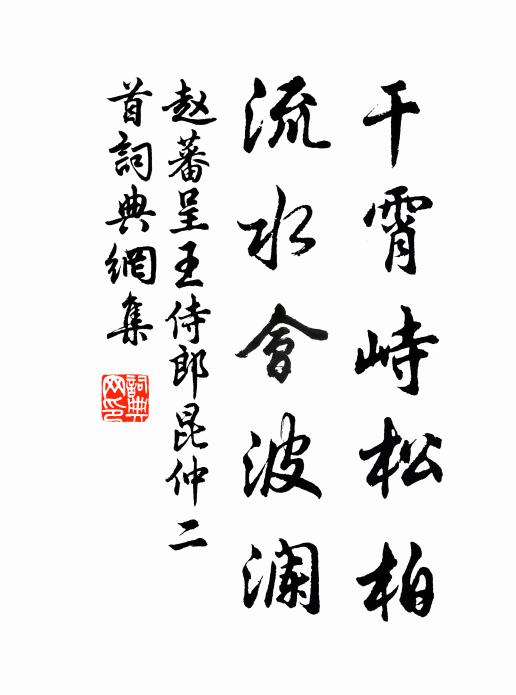 干霄峙松柏
流水會波澜
赵蕃呈王侍郎昆仲二
首詞典網集
詞典
网印